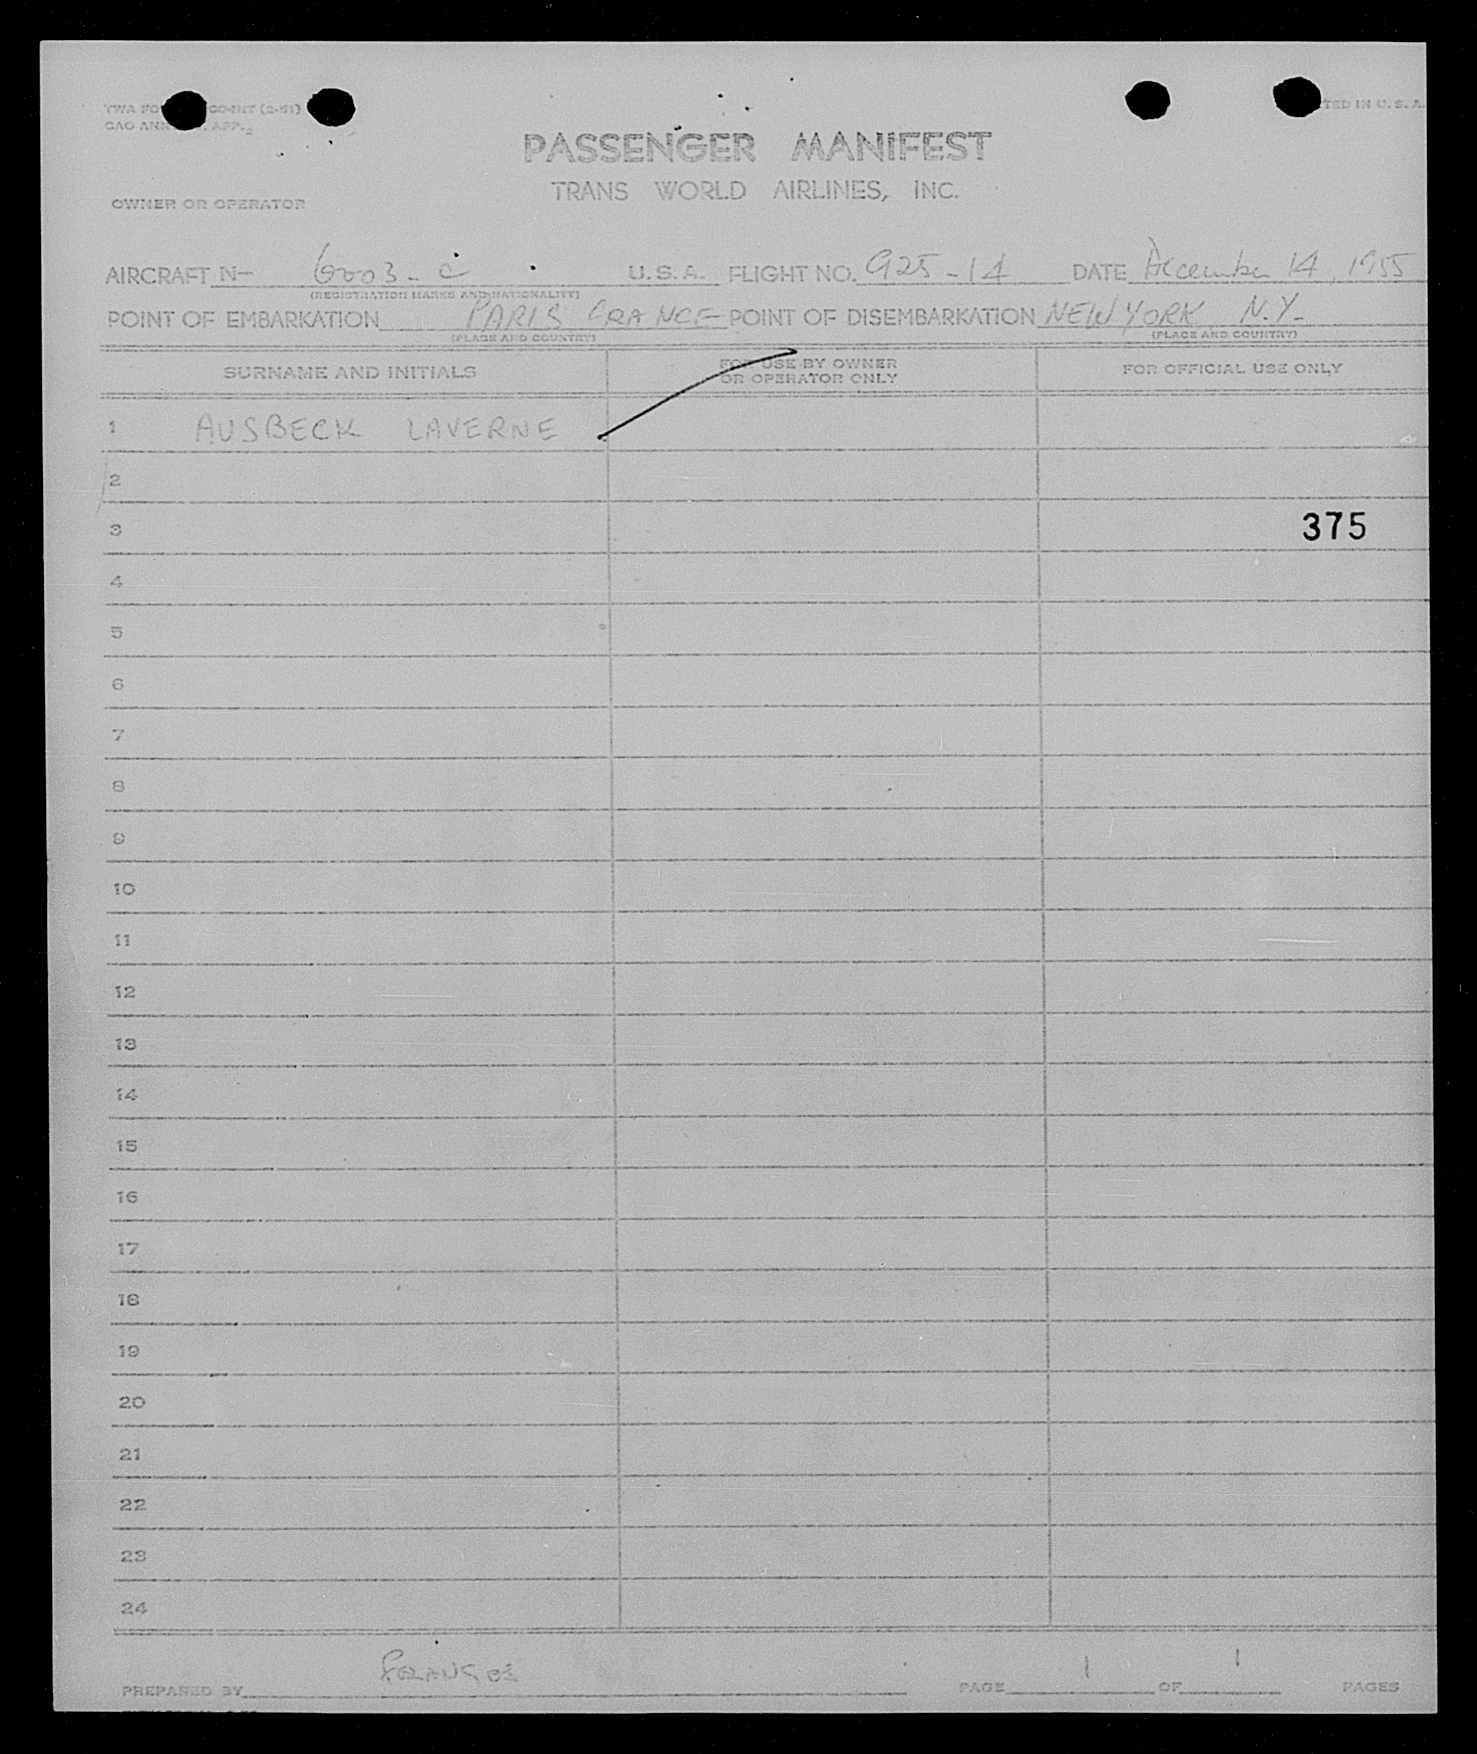 PRINTED IN U. S. A.
PASSENGER MANIFEST
TRANS WORLD AIRLINES, INC.
OWNER OR OPERATOR
AIRCRAFT N- 6003-C U.S.A. FLIGHT NO. 925-14 DATE December 14, 1955
(REGISTRATION MARKS AND NATIONALITY)
POINT OF EMBARKATION PARIS FRANCE POINT OF DISEMBARKATION NEW YORK N.Y.
(PLACE AND COUNTRY) (PLACE AND COUNTRY)
SURNAME AND INITIALS
FOR USE BY OWNER
OR OPERATOR ONLY
FOR OFFICIAL USE ONLY
1 AUSBECK LAVERNE
2
3 375
4
5
6
7
8
9
10
11
12
13
14
15
16
17
18
19
20
21
22
23
24
PREPARED BY PAGE 1 OF 1 PAGES